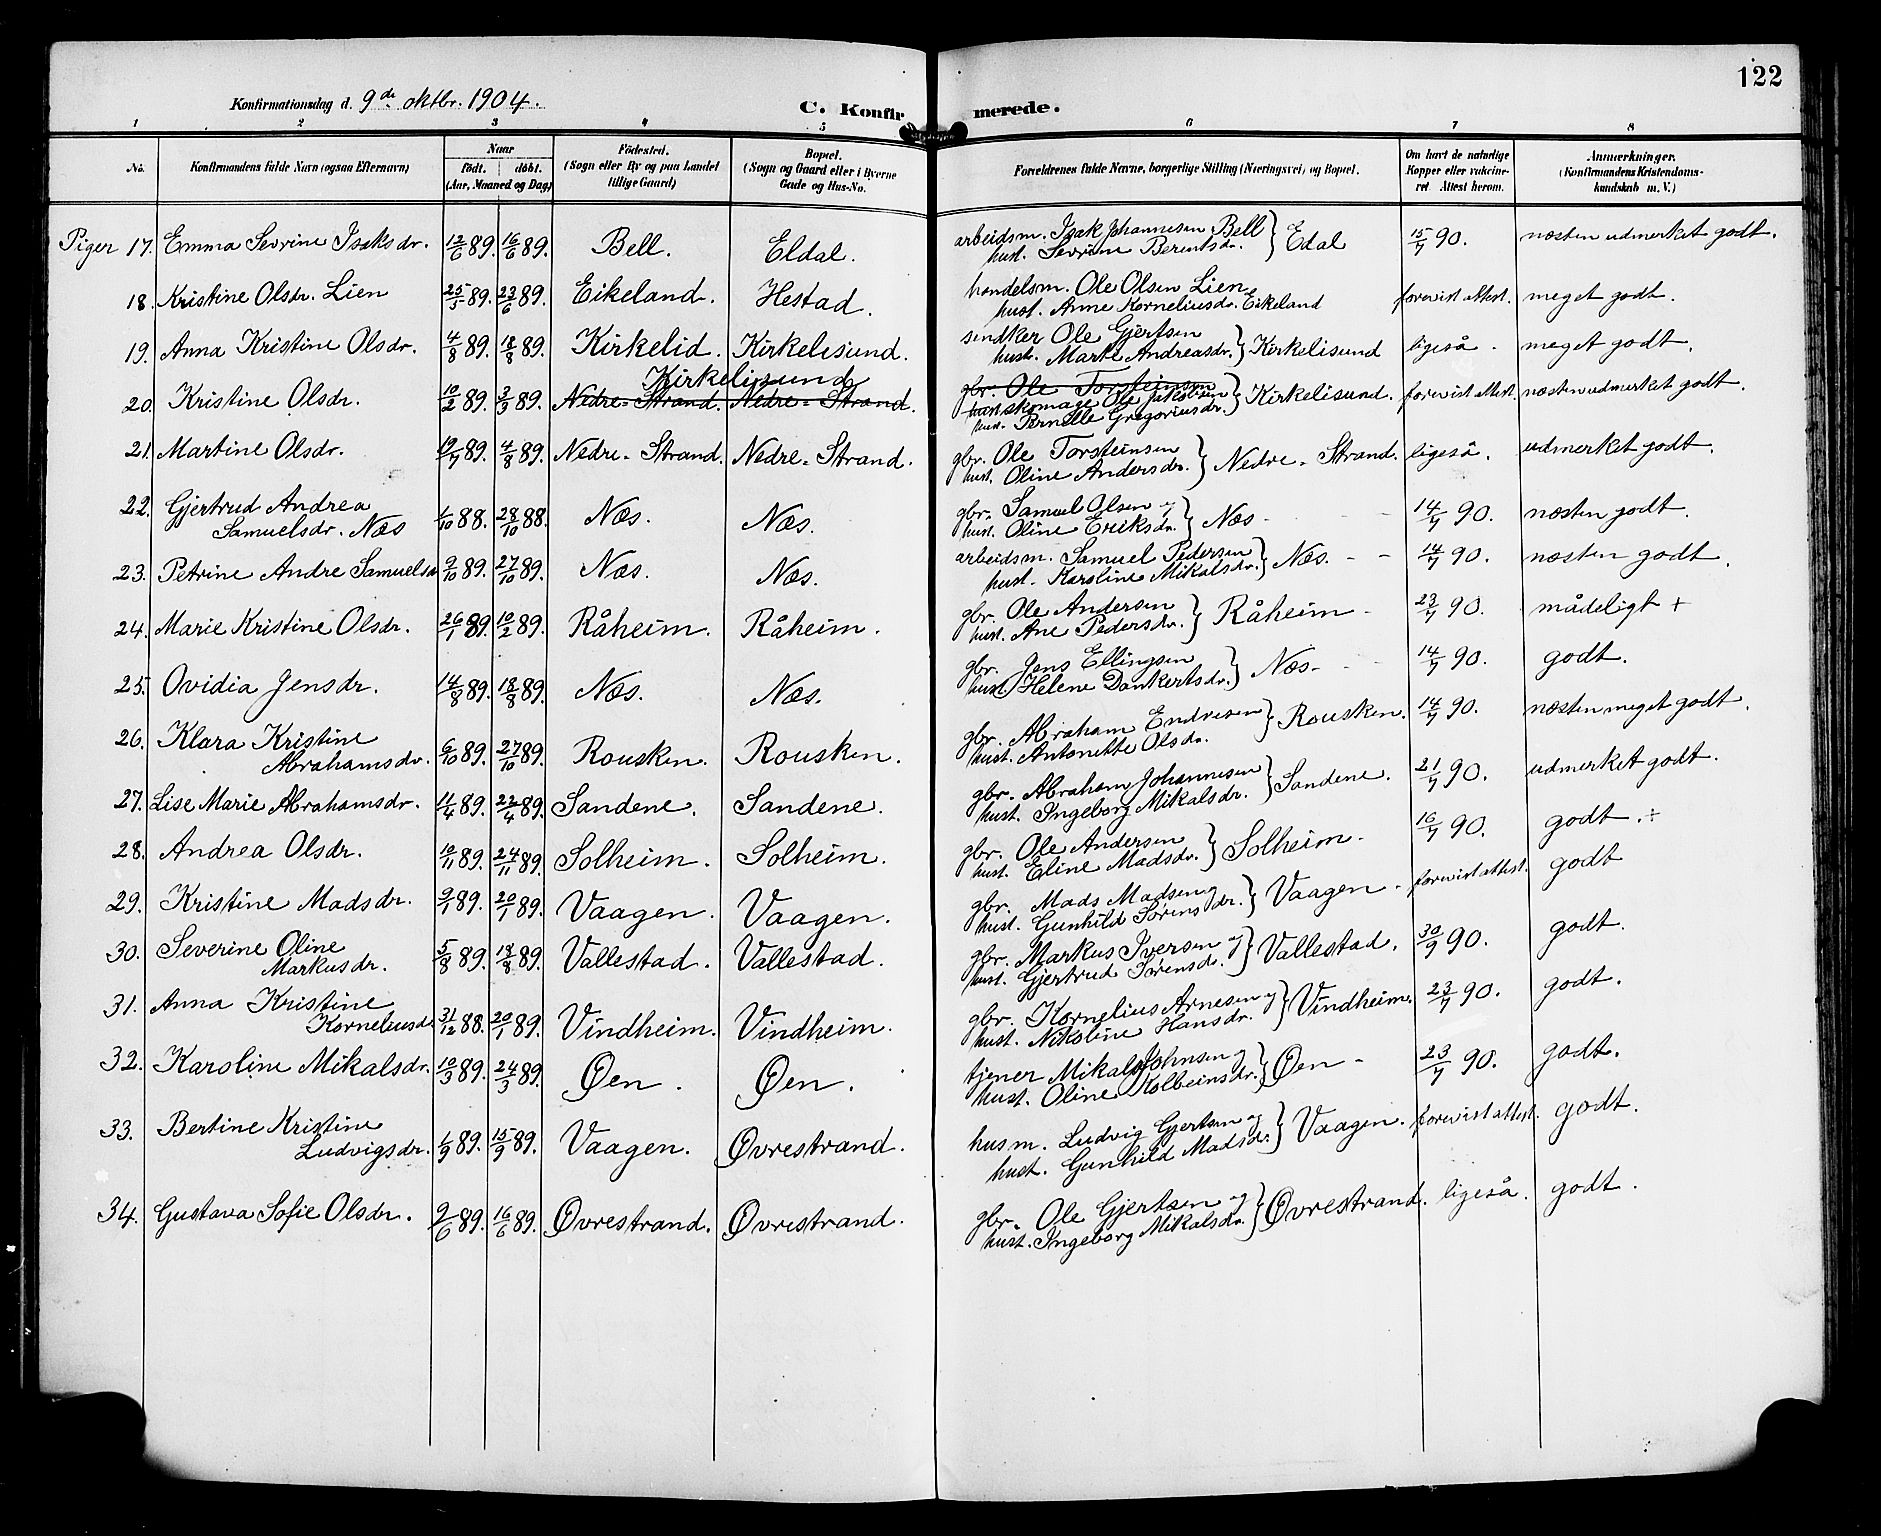 122
Konfirmationsdag d. 9de oktbr. 1904.
C. Konfirmerede.
1 2 3 4 5 6 7 8
No. Konfirmandens fulde Navn (ogsaa Efternavn) Naar födt. döbt. (Aar, Maaned og Dag) Födested. (Sogn eller By og paa Landet tillige Gaard) Bopæl. (Sogn og Gaard eller i Byerne Gade og Hus-No. Forældrenes fulde Navne, borgerlige Stilling (Næringsvei) og Bopæl. Om havt de naturlige Kopper eller vakcineret Attest herom. Anmærkninger. (Konfirmandens Kristendomskundskab m. V.)
Piger 17. Emma Sevrine Isaksdr. 12/6 89. 16/6 89. Bell. Eldal. arbeidsm. Isak Johannesen Bell
hust. Sevrine Berentsdr. } Edal 15/7 90. næsten udmerket godt.
18. Kristine Olsdr. Lien 25/5 89. 23/6 89. Eikeland. Hestad. handelsm. Ole Olsen Lien
hust. Anne Korneliusdr. Eikeland forevist attest. meget godt.
19. Anna Kristine Olsdr. 4/8 89. 18/8 89. Kirkelid. Kirkelisund. snedker Ole Gjertsen
hust. Marte Andreasdr. } Kirkelisund ligeså - meget godt.
Kirkelisund
20. Kristine Olsdr. 10/2 89. 3/3 89. Nedre-Strand. Nedre-Strand. gbr. Ole Torsteinsen
hust. skomager Ole Jakobsen
hust. Pernille Gregoriusdr. } Kirkelisund. forevist attest. næsten udmerket godt.
21. Martine Olsdr. 19/7 89. 4/8 89. Nedre-Strand. Nedre-Strand. gbr. Ole Torsteinsen
hust. Oline Andersdr. } Nedre-Strand. ligeså. udmerket godt.
22. Gjertrud Andrea
Samuelsdr. Næs 1/10 88. 28/10 88. Næs. Næs. gbr. Samuel Olsen og
hust. Oline Eriksdr. } Næs - 14/7 90. næsten godt.
23. Petrine Andre Samuelsdr 9/10 89. 27/10 89. Næs. Næs. arbeidsm. Samuel Pedersen
hust. Karoline Mikalsdr. } Næs. - - 14/7 90. næsten godt.
24. Marie Kristine Olsdr. 26/1 89. 10/2 89. Råheim. Råheim. gbr. Ole Andersen
hust. Ane Pedersdr. } Råheim - 23/7 90. mådeligt +
25. Ovidia Jensdr. 14/8 89. 18/8 89. Næs. Næs. gbr. Jens Ellingsen
hust. Helene Dankertsdr. } Næs - 14/7 90. godt.
26. Klara Kristine
Abrahamsdr. 6/10 89. 27/10 89. Rousken. Rousken. gbr. Abraham Endresen
hust. Antonette Olsdr. } Rousken. 14/7 90. næsten meget godt.
27. Lise Marie Abrahamsdr. 11/4 89. 22/4 89. Sandene. Sandene. gbr. Abraham Johannesen
hust. Ingeborg Mikalsdr. } Sandene. 21/7 90. udmerket godt.
28. Andrea Olsdr. 10/11 89. 24/11 89. Solheim. Solheim. gbr. Ole Andersen
hust. Eline Madsdr. } Solheim - 16/7 90. godt. ÷
29. Kristine Madsdr. 9/1 89. 20/1 89. Vaagen. Vaagen. gbr. Mads Madsen og
hust. Gunhild Sørensdr. } Vaagen - forevist attest. godt
30. Severine Oline
Markusdr. 5/8 89. 18/8 89. Vallestad. Vallestad. gbr. Markus Iversen og
hust. Gjertrud Sørensdr. } Vallestad. 30/9 90. godt.
31. Anna Kristine
Korneliusdr 31/12 88. 20/1 89. Vindheim. Vindheim. gbr. Kornelius Arnesen og
hust. Nikoline Hansdr. } Vindheim. 23/7 90. godt.
32. Karoline Mikalsdr. 10/3 89. 24/3 89. Øen. Øen. tjener Mikal Johnsen og
hust. Oline Kolbeinsdr. } Øen - 23/7 90. godt.
33. Bertine Kristine
Ludvigsdr. 1/9 89. 15/9 89. Vaagen. Øvrestrand. husm. Ludvig Gjertsen og
hust. Gunhild Madsdr. } Vaagen. forevist attest. godt.
34. Gustava Sofie Olsdr. 9/6 89. 16/6 89. Øvrestrand. Øvrestrand. gbr. Ole Gjertsen og
hust. Ingeborg Mikalsdr. } Øvrestrand. ligeså. godt.